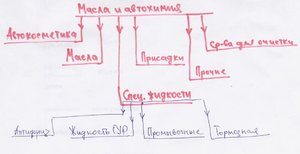 Масла и автохимия
Автокосметика
Масла
Присадки
Ср-ва для очистки
Прочие
Спец. жидкости
Антифриз
Жидкость ГУР
Промывочные
Тормозная